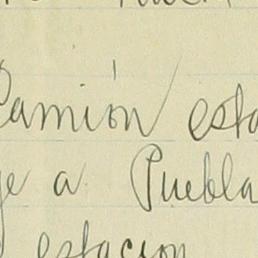 Camión esta
ge a Puebla
estacion